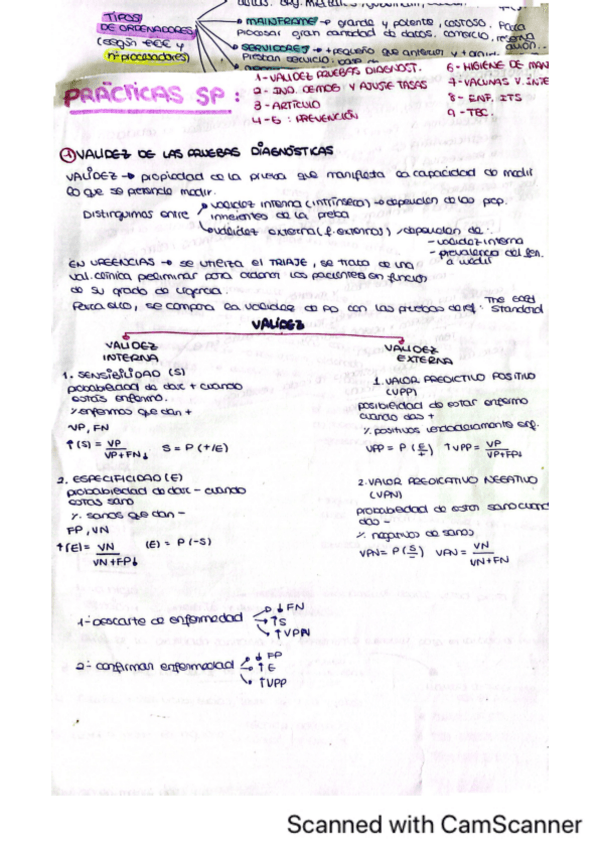 TIPOS
DE ORDENADORES
(según
nº procesadores)
MAINFRAME → grande y potente, costoso. Para
procesar gran cantidad de datos. comercio, reserva
SERVIDORES → + pequeño que anterior y
Prestan servicio,
PRÁCTICAS SP:
1-VALIDEZ PRUEBAS DIAGNOST.
2- IND. DEMOG Y AJUSTE TASAS
3- ARTÍCULO
4-5: PREVENCIÓN
6- HIGIENE DE MAN
7- VACUNAS V. INTE
8- ENF. ITS
9- TBC
1 VALIDEZ DE LAS PRUEBAS DIAGNÓSTICAS
VALIDEZ → propiedad de la prueba que manifiesta la capacidad de medir
lo que se pretende medir.
Distinguimos entre
validez interna (intrínseca) → dependen de las prop.
inherentes de la
validez externa (f. externos) / dependen de:
- validez interna
- prevalencia del fen.
a medir
EN URGENCIAS → se utiliza el TRIAJE, se trata de una
val. clínica preliminar para ordenar los pacientes en función
de su grado de urgencia.
Para ello, se compara la validez de PD con las pruebas de ref: The Gold Standard
VALIDEZ
VALIDEZ
INTERNA
1. SENSIBILIDAD (S)
probabilidad de dar + cuando
estás enfermo.
% enfermos que dan +
VP, FN
↑(S) = VP / VP+FN↓ S = P (+/E)
2. ESPECIFICIDAD (E)
probabilidad de dar - cuando
estás sano
% sanos que dan -
FP, VN
↑(E) = VN / VN+FP↓ (E) = P (-S)
VALIDEZ
EXTERNA
1. VALOR PREDICTIVO POSITIVO
(VPP)
posibilidad de estar enfermo
cuando das +
% positivos verdaderamente enf.
VPP = P (E/+) ↑VPP = VP / VP+FP↓
2. VALOR PREDICATIVO NEGATIVO
(VPN)
probabilidad de estar sano cuand
das -
% negativos de sanos
VPN = P (S/-) VPN = VN / VN+FN
1- Descarte de enfermedad
↓ FN
↑ S
↑ VPN
2- confirman enfermedad
↓ FP
↑ E
↑ VPP
Scanned with CamScanner